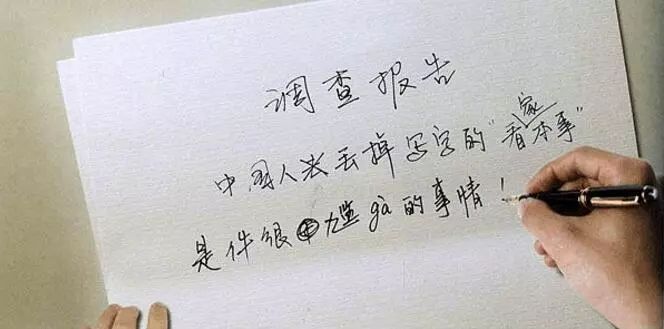 调查报告
中国人丢掉写字的“看家本事”
是件很尴gà的事情！